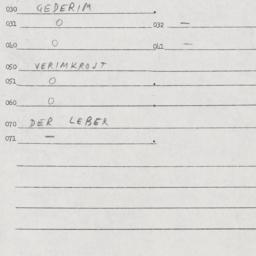 030 GEDERIM
031 O 032 —
040 O 041 —
050 VERIMKROJT
051 O
060 O
070 DER LEBER
071 —